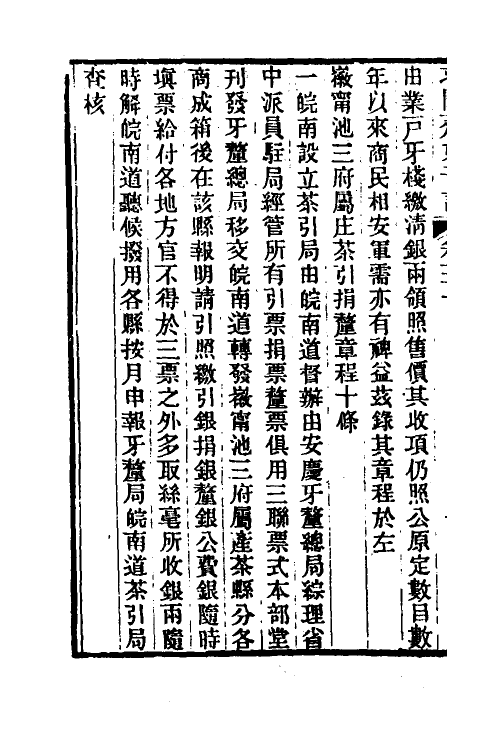 由業戸牙棧繳淸銀兩領照售價其收項仍照公原定數目數
年以來商民相安軍需亦有裨益茲錄其章程於左
徽甯池三府屬庄茶引捐釐章程十條
一皖南設立茶引局由皖南道督辦由安慶牙釐總局綜理省
中派員駐局經管所有引票捐票釐票俱用三聯票式本部堂
刊發牙釐總局移交皖南道轉發徽甯池三府屬產茶縣分各
商成箱後在該縣報明請引照繳引銀捐銀釐銀公費銀隨時
塡票給付各地方官不得於三票之外多取絲毫所收銀兩隨
時解皖南道聽候撥用各縣按月申報牙釐局皖南道茶引局
查核